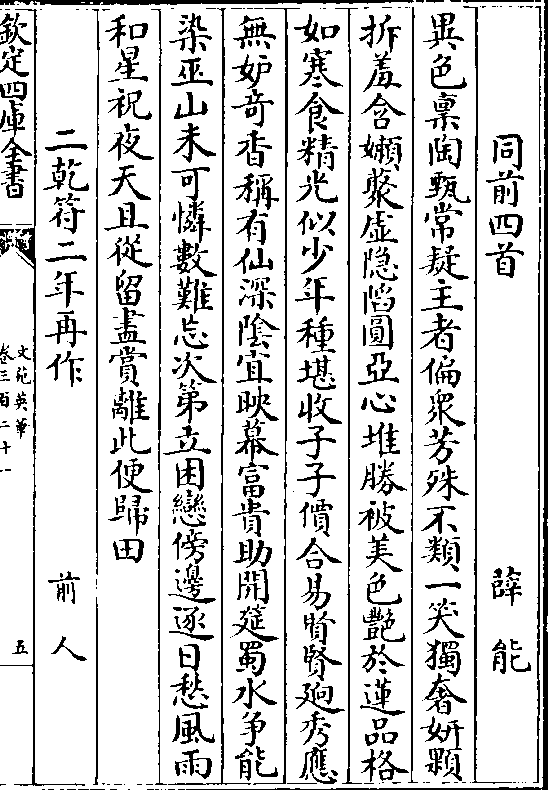 同前四首 薛能
異色稟陶甄常疑主者偏衆芳殊不類一笑獨奢妍顆
拆羞含嬾藂虛隐陷圓亞心堆勝被美色艷於蓮品格
如寒食精光似少年種堪收子子價合易賢賢逈秀應
無妒竒香稱有仙深陰宜映幕富貴助開筵蜀水争能
染巫山未可憐數難忘次第立困戀傍邊逐日愁風雨
和星祝夜天且從留盡賞離此便歸田
二乾符二年再作 前人
欽定四庫全書
文苑英華
卷三百二十一
五